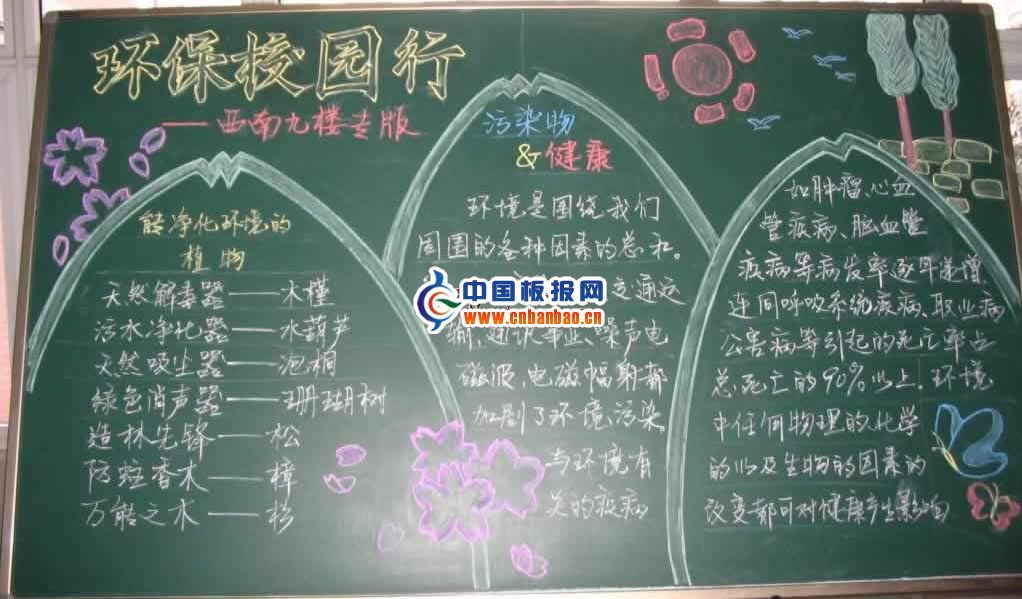 环保校园行
——西南九楼专版
能净化环境的
植物
天然解毒器——木槿
污水净化器——水葫芦
天然吸尘器——泡桐
绿色消声器——珊瑚树
造林先锋——松
防蛀香木——樟
万能之木——杉
污染物
&健康
环境是围绕我们
周围的各种因素的总和。
交通运
输,通讯事业、噪声电
磁波,电磁幅射都
加剧了环境污染
与环境有
关的疾病
如肿瘤、心血
管疾病、脑血管
疾病等病发率逐年递增
连间呼吸系统疾病、职业病
公害病等引起的死亡率占
总死亡的90%以上。环境
中任何物理的化学
的以及生物的因素的
改变都可对健康产生影响
中国板报网
www.cnbanbao.cn